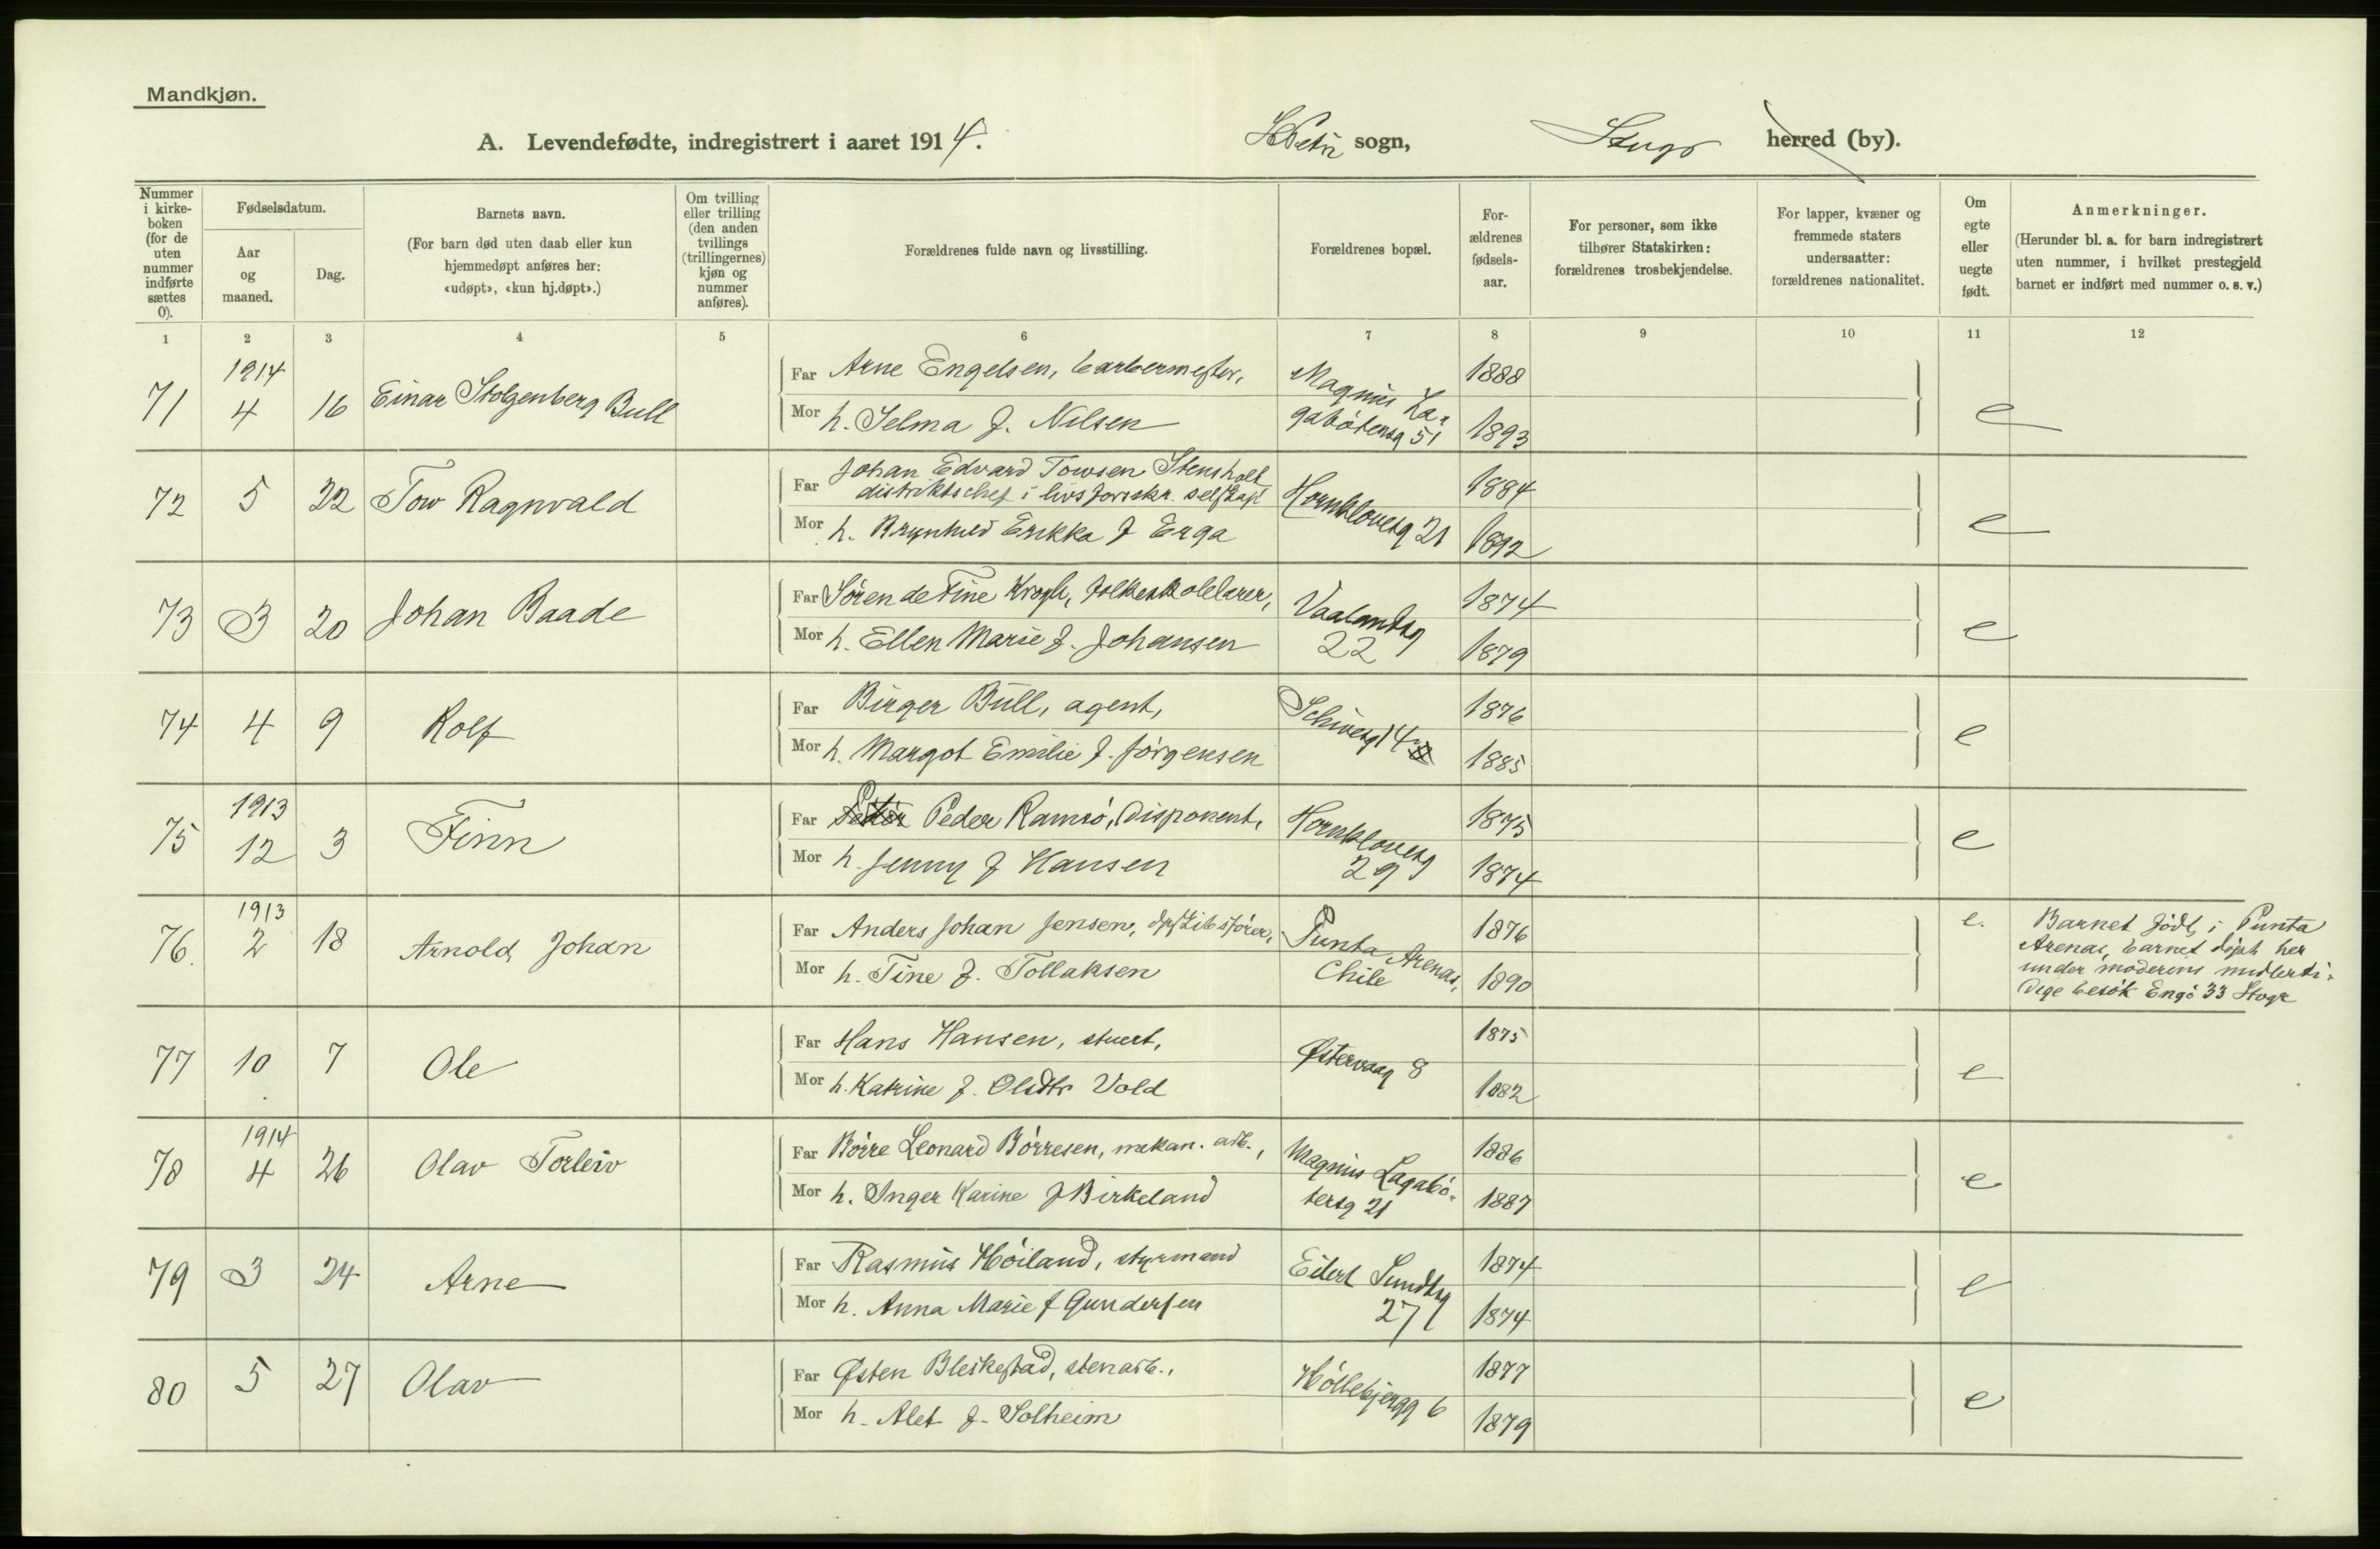 Mandkjøn.
A. Levendefødte, indregistrert i aaret 1914. St Petri sogn, herred (by).
Nummer i kirkeboken (for de uten nummer indførte sættes 0).
Fødselsdatum.
Aar og maaned.
Dag.
Barnets navn.
(For barn død uten daab eller kun
hjemmedøpt anføres her:
«udøpt», «kun hj.døpt».)
Om tvilling
eller trilling
(den anden
tvillings
(trillingernes)
kjøn og
nummer
anføres).
Forældrenes fulde navn og livsstilling.
Forældrenes bopæl.
For-
ældrenes
fødsels-
aar.
For personer, som ikke
tilhører Statskirken:
forældrenes trosbekjendelse.
For lapper, kvæner og
fremmede staters
undersaatter:
forældrenes nationalitet.
Om
egte
eller
uegte
født.
Anmerkninger.
(Herunder bl. a. for barn indregistrert
uten nummer, i hvilket prestegjeld
barnet er indført med nummer o. s. v.)
1 2 3 4 5 6 7 8 9 10 11 12
71 1914 4 16 Einar Stolgenberg Bull
Far Arne Engelsen, barbermester,
Mor h. Selma f. Nilsen
Magnus La-
gabøtersg 51
1888
1893
e
72 5 22 Tow Ragnvald
Far Johan Edvard Towsen Stensholt
distriktschef i livsforsikr. selskap
Mor h. Brynhild Erikka f Erga
Hornklovesg 21
1884
1892
e
73 3 20 Johan Baade
Far Søren de Fine Krogh, folkeskolelærer,
Mor h. Ellen Marie f. Johansen
Vaalandsg
22
1874
1879
e
74 4 9 Rolf
Far Birger Bull, agent,
Mor h. Margot Emilie f. Jørgensen
14
1876
1885
e
75 1913 12 3 Finn
Far Peder Ramsø, disponent,
Mor h. Jenny f Hansen
Hornklovesg
29
1875
1874
e
76. 1913 2 18 Arnold Johan
Far Anders Johan Jensen,
Mor h. Tine f. Tollaksen
Punta Arenas,
Chile
1876
1890
e.
Barnet født i Punta
Arenas, barnet døpt her
under moderens midlerti-
dige besøk Engø 33 Stvgr
77 10 7 Ole
Far Hans Hansen, stuert,
Mor h. Katrine f. Olsdtr Vold
Østervaag 8
1875
1882
e
78 1914 4 26 Olav Torleiv
Far Børre Leonard Børresen, mekan. arb.,
Mor h. Inger Karine f Birkeland
Magnus Lagabø-
tersg 21
1886
1887
e
79 3 24 Arne
Far Rasmus Høiland, styrmand
Mor h. Anna Marie f Gundersen
Eilert Sundtsg
27
1874
1874
e
80 5 27 Olav
Far Østen Bleskestad, stenarb.,
Mor h. Alet f. Solheim
6
1877
1879
e